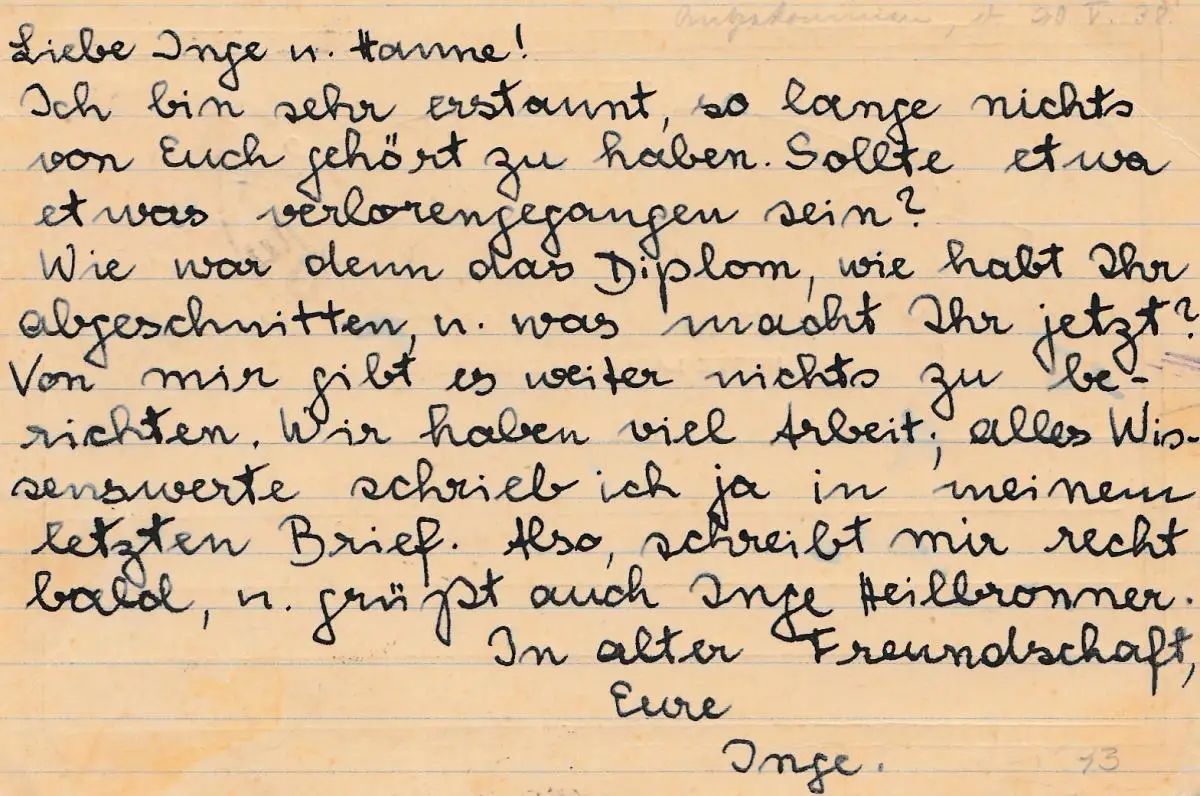 20 V. 38.
Liebe Inge u. Hanne!
Ich bin sehr erstaunt, so lange nichts
von Euch gehört zu haben. Sollte etwa
etwas verlorengegangen sein?
Wie war denn das Diplom, wie habt Ihr
abgeschnitten, u. was macht Ihr jetzt?
Von mir gibt es weiter nichts zu be-
richten. Wir haben viel Arbeit; alles Wis-
senswerte schrieb ich ja in meinem
letzten Brief. Also, schreibt mir recht
bald, u. grüßt auch Inge Heilbronner.
In alter Freundschaft,
Eure
Inge.
13